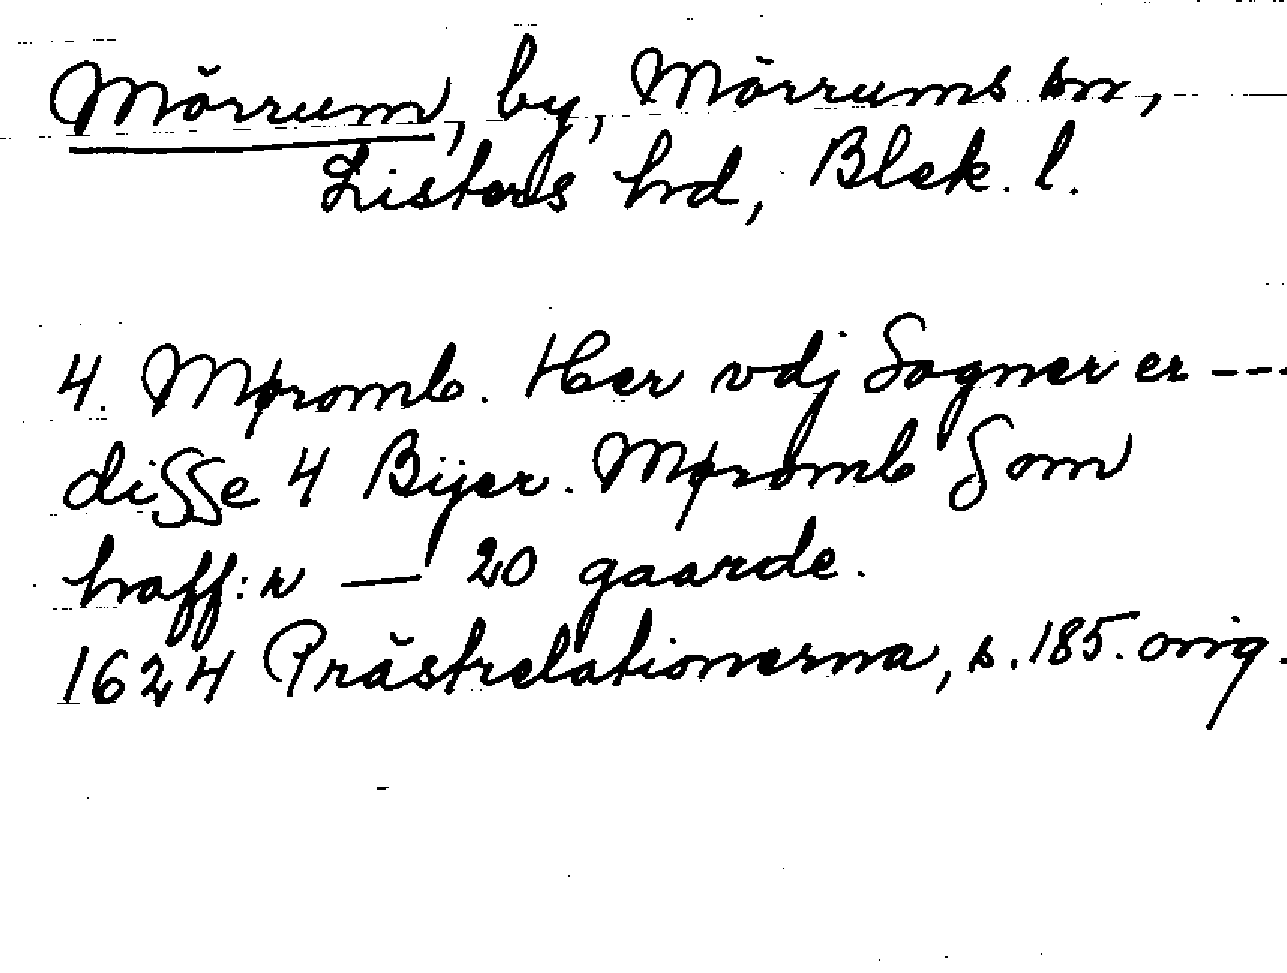 Mörrum, by, Mörrums sn,
Listers hrd, Blek. l.
4. Møromb. Her vdj Sogner er ---
disse 4 Bijer. Møromb Som
haff:r — 20 gaarde.
1624 Prästrelationerna, s. 185. orig.